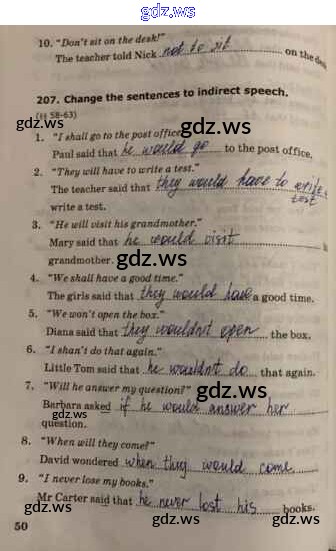 www.gdz.ru
10. "Don't sit on the desk!"
The teacher told Nick not to sit on the desk
207. Change the sentences to indirect speech.
(§§ 58-63)
gdz.ru
1. "I shall go to the post office
Paul said that he would go to the post office.
2. "They will have to write a test."
The teacher said that they would have to write
test
write a test.
3. "He will visit his grandmother."
Mary said that he would visit
grandmother.
www.gdz.ru
4. "We shall have a good time."
The girls said that they would have a good time.
5. "We won't open the box."
Diana said that they wouldn't open the box.
6. "I shan't do that again."
Little Tom said that he wouldn't do that again.
7. "Will he answer my question?"
www.gdz.ru
Barbara asked if he would answer her
question.
8. "When will they come?"
David wondered when they would come
9. "I never lose my books."
Mr Carter said that he never lost his books.
50
www.gdz.ru